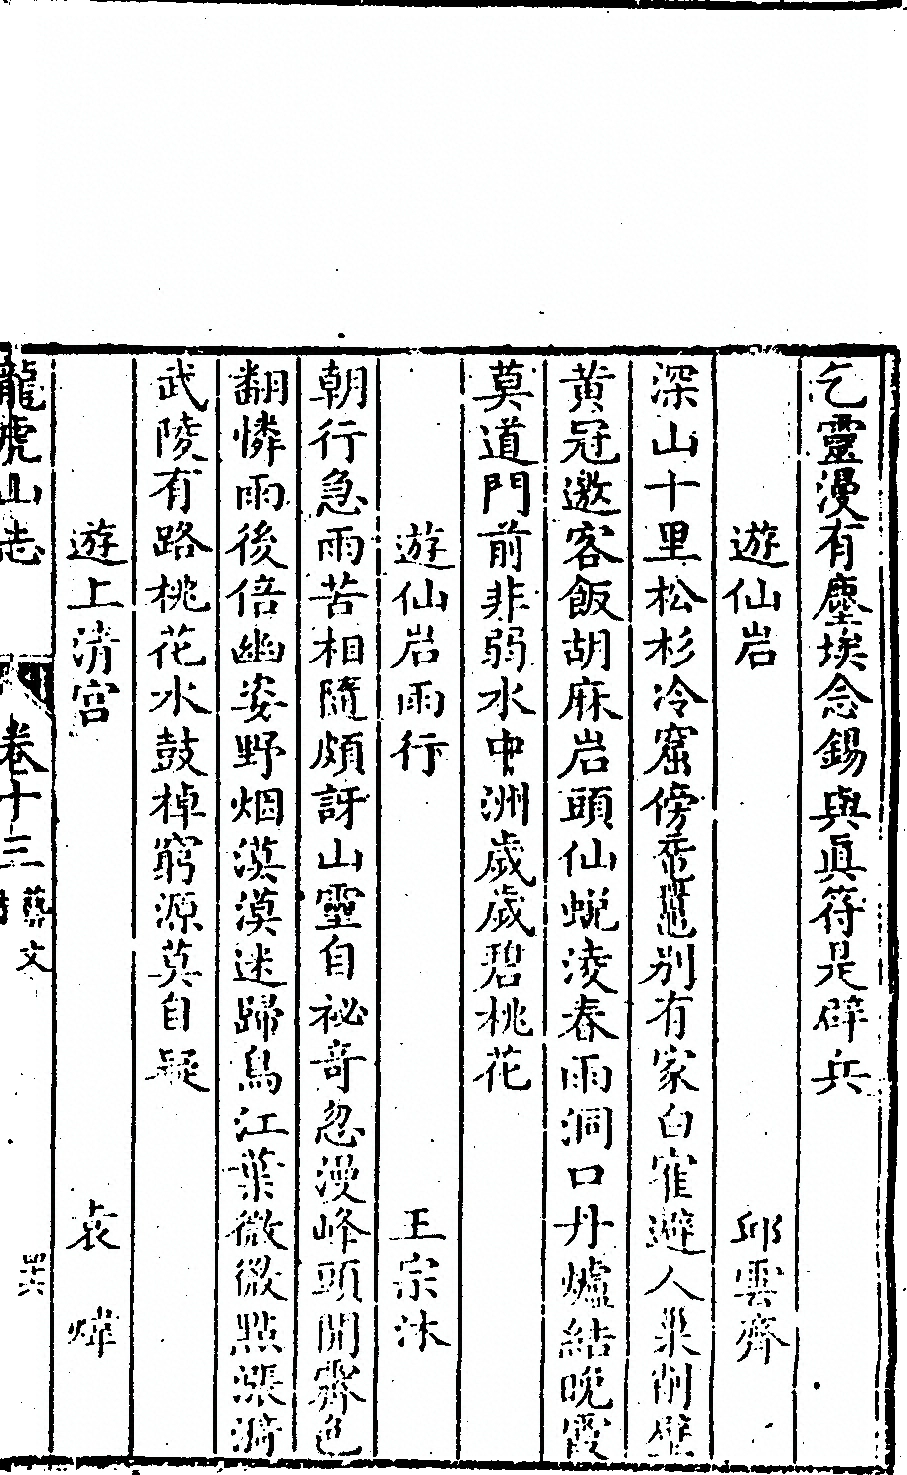 乞靈漫有塵埃念錫與眞符是辟兵
遊仙岩 邱雲齊
深山十里松杉冷窟傍丹竈別有家白隺避人巢削壁
黄冠邀客飯胡麻岩頭仙蛻淩春雨洞口丹爐結晚霞
莫道門前非弱水中洲歲歲碧桃花
遊仙岩雨行 王宗沐
朝行急雨苦相隨頗訝山靈自祕竒忽漫峰頭開霽色
翻憐雨後倍幽姿野烟漠漠迷歸鳥江葉微微點漲漪
武陵有路桃花水鼓棹窮源莫自疑
遊上清宫 袁煒
龍虎山志 卷十三 藝文